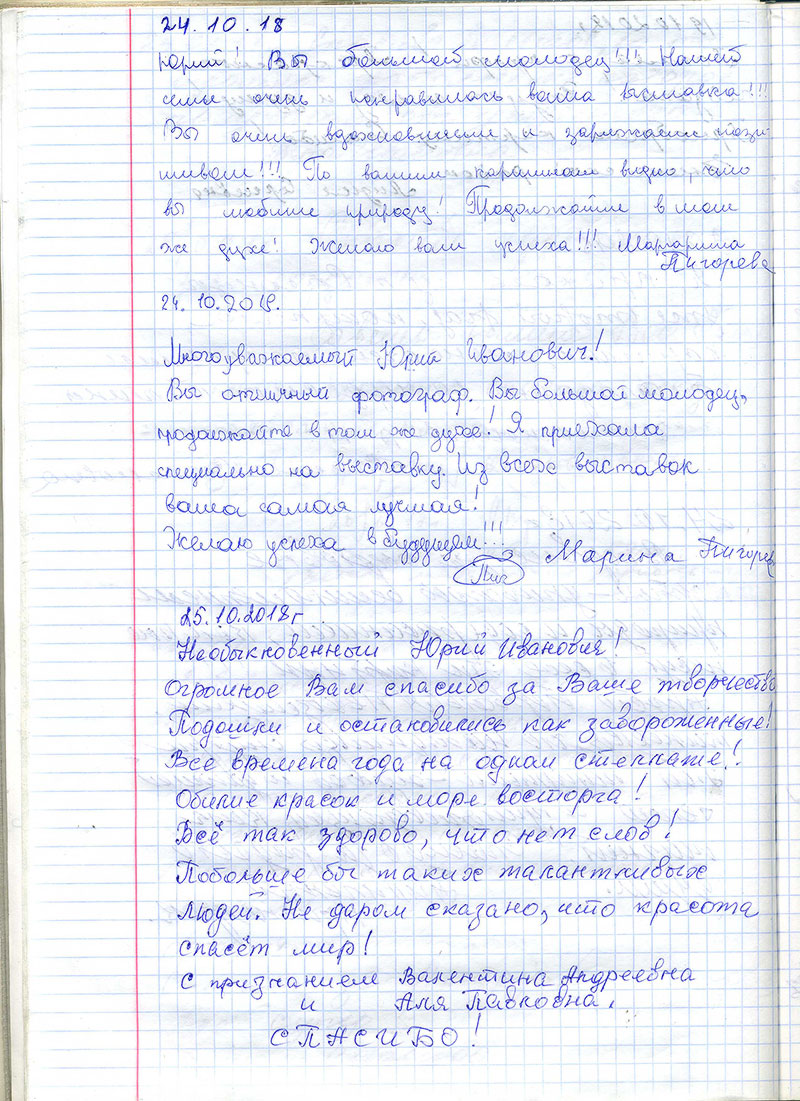 24.10.18
Юрий! Вы большой молодец!!! Нашей
семье очень понравилась ваша выставка!!!
Вы очень вдохновили и заряжаете пози-
тивом!!! По вашим картинам видно, что
вы любите природу! Продолжайте в том
же духе! Желаю вам успеха!!! Маргарита
Пигорева
24.10.2018.
Многоуважаемый Юрий Иванович!
Вы отличный фотограф. Вы большой молодец,
продолжайте в том же духе! Я приехала
специально на выставку. Из всех выставок
ваша самая лучшая!
Желаю успеха в будущем!!!
Пиг Марина Пигорев
25.10.2018г
Необыкновенный Юрий Иванович!
Огромное Вам спасибо за Ваше творчество
Подошли и остановились как завороженные!
Все времена года на одном стеллаже!
Обилие красок и море восторга!
Всё так здорово, что нет слов!
Побольше бы таких талантливых
людей. Не даром сказано, что красота
спасёт мир!
С признанием Валентина Андреевна
и Аля Павловна.
СПАСИБО!